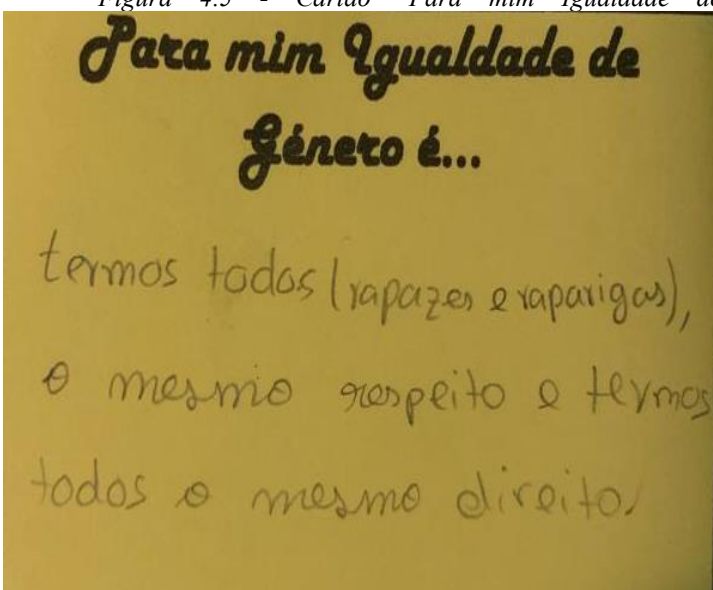 Figura 4.5 - Cartão "Para mim Igualdade de
Para mim Igualdade de
Género é...
termos todos (rapazes e raparigas),
o mesmo respeito e termos
todos o mesmo direito.